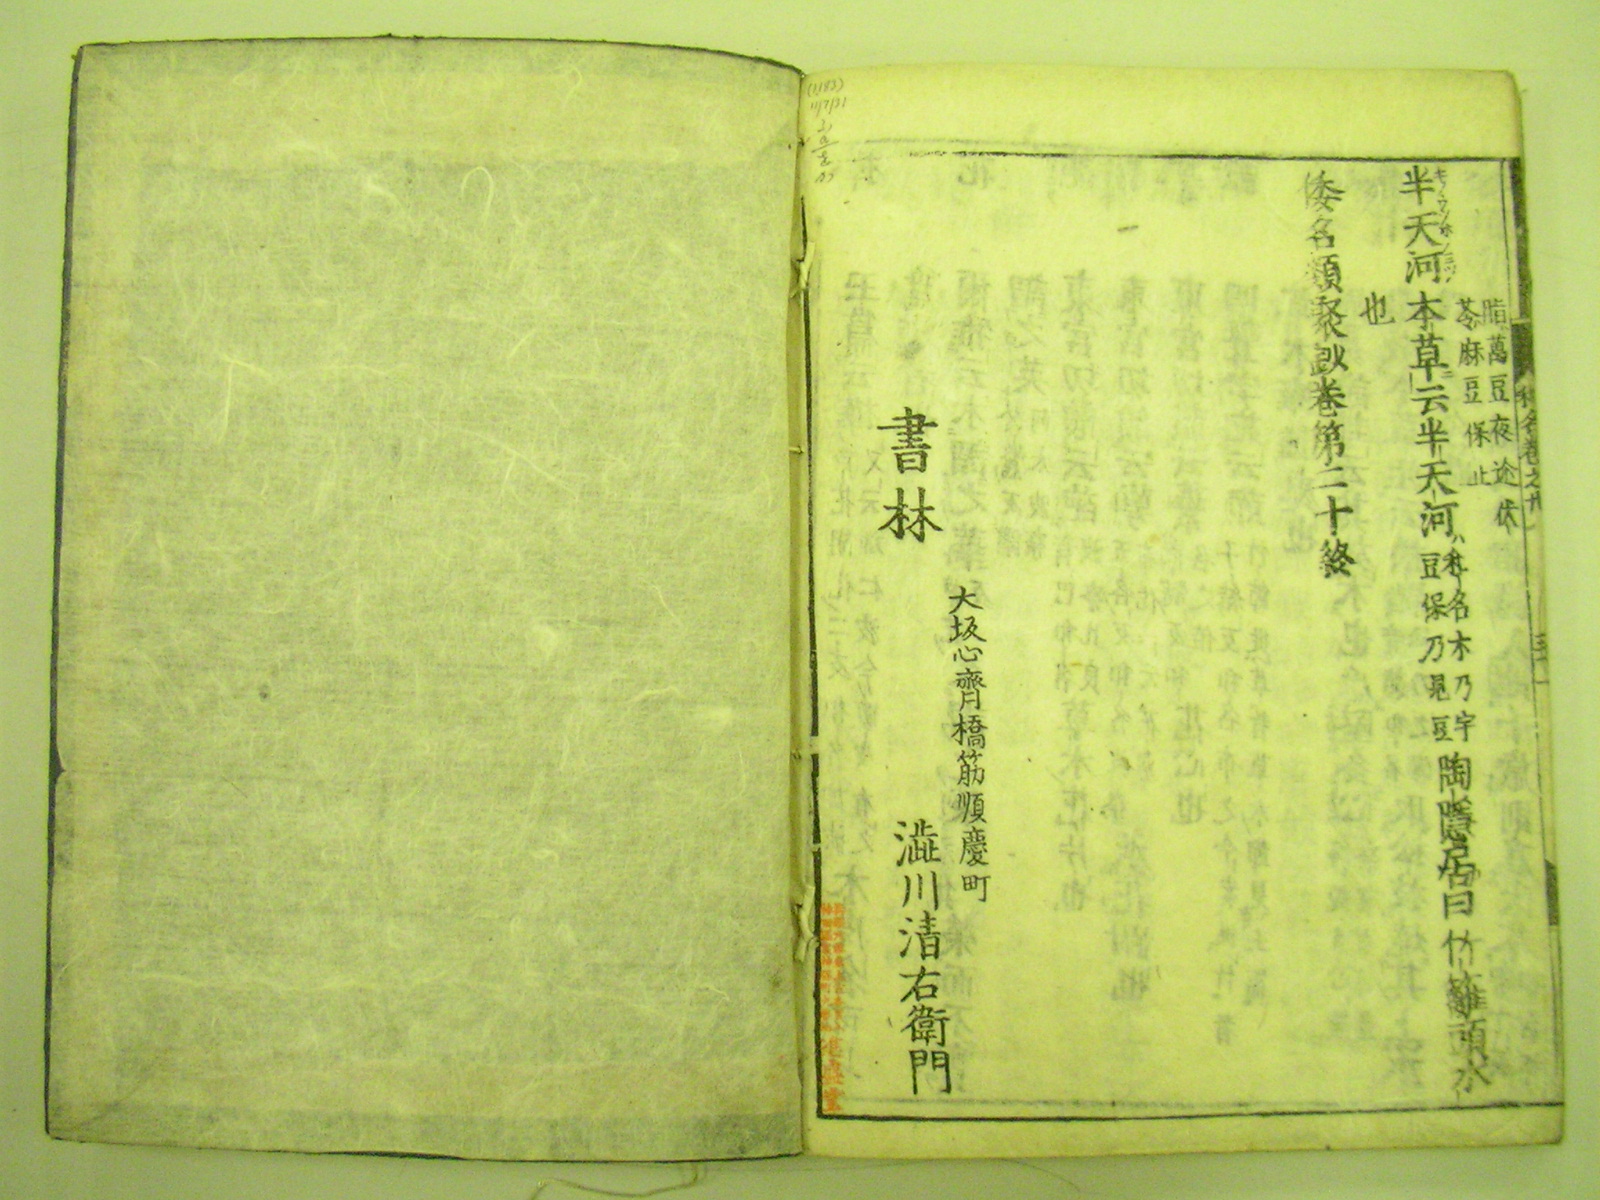 脂萬豆夜途伏
苓麻豆保止
半天河本草云半天河和名木乃宇豆保乃美豆陶隱居曰竹籬頭水
也
倭名類聚鈔卷第二十終
大坂心齊橋筋順慶町
書林 澁川清右衛門